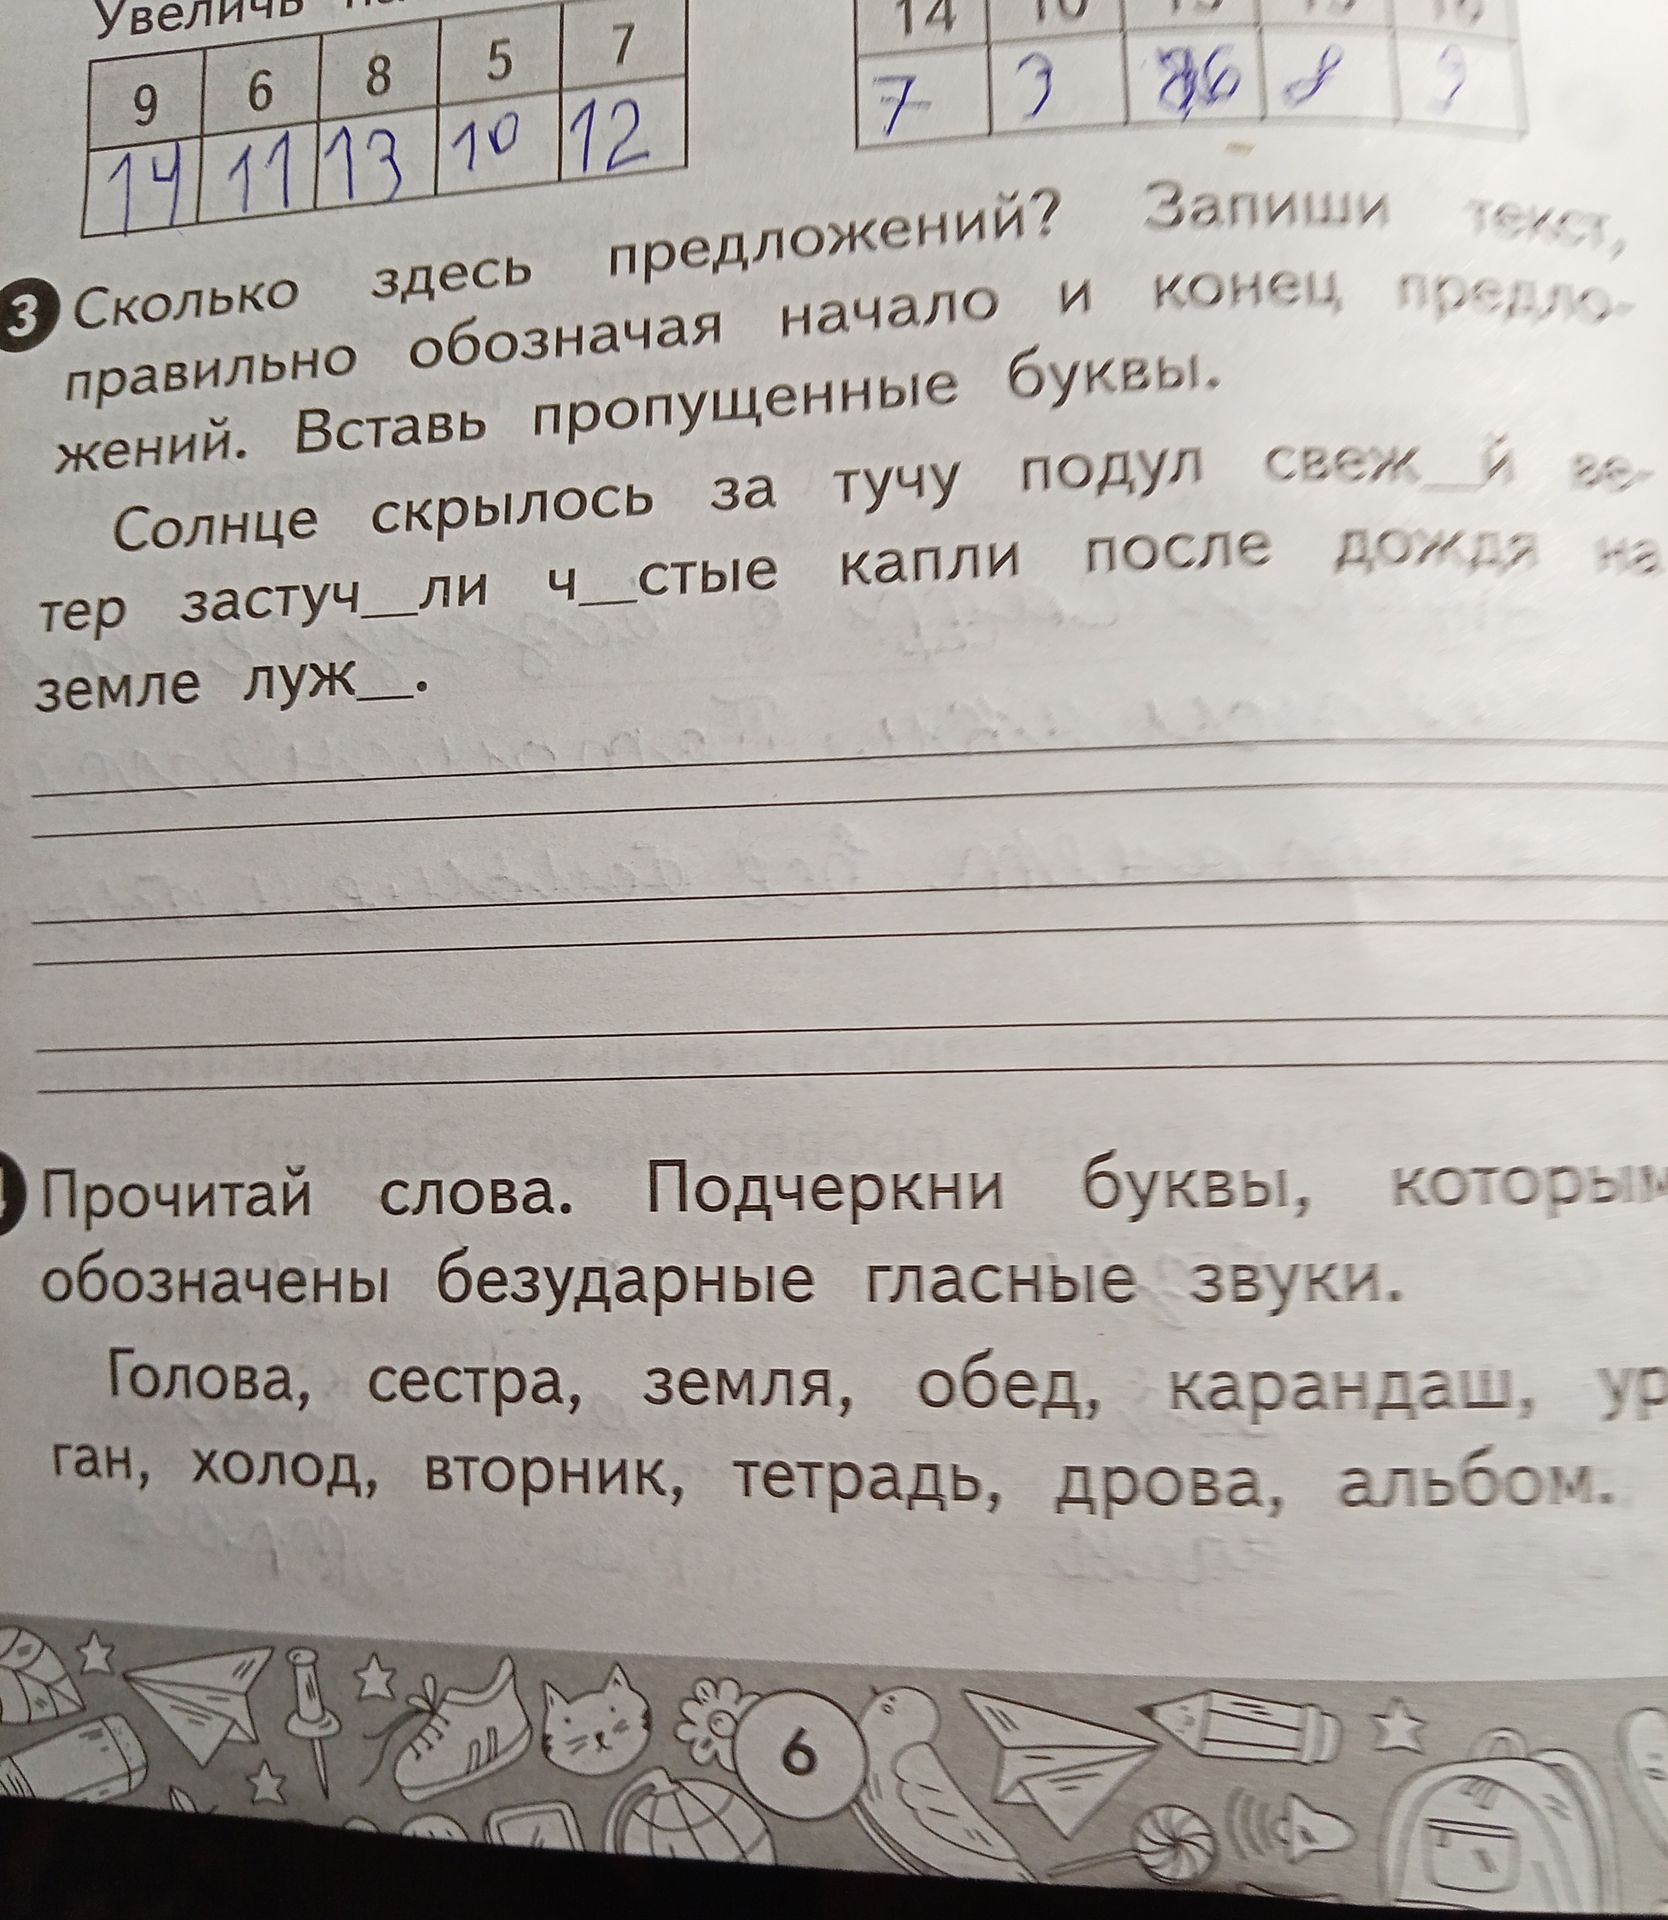 Увеличь
9 6 8 5 7
14 11 13 10 12
14 10
7 3 6 8 9
3 Сколько здесь предложений? Запиши текст,
правильно обозначая начало и конец предло-
жений. Вставь пропущенные буквы.
Солнце скрылось за тучу подул свеж__й ве-
тер застуч__ли ч__стые капли после дождя на
земле луж__.
Прочитай слова. Подчеркни буквы, которым
обозначены безударные гласные звуки.
Голова, сестра, земля, обед, карандаш, ур
ган, холод, вторник, тетрадь, дрова, альбом.
6